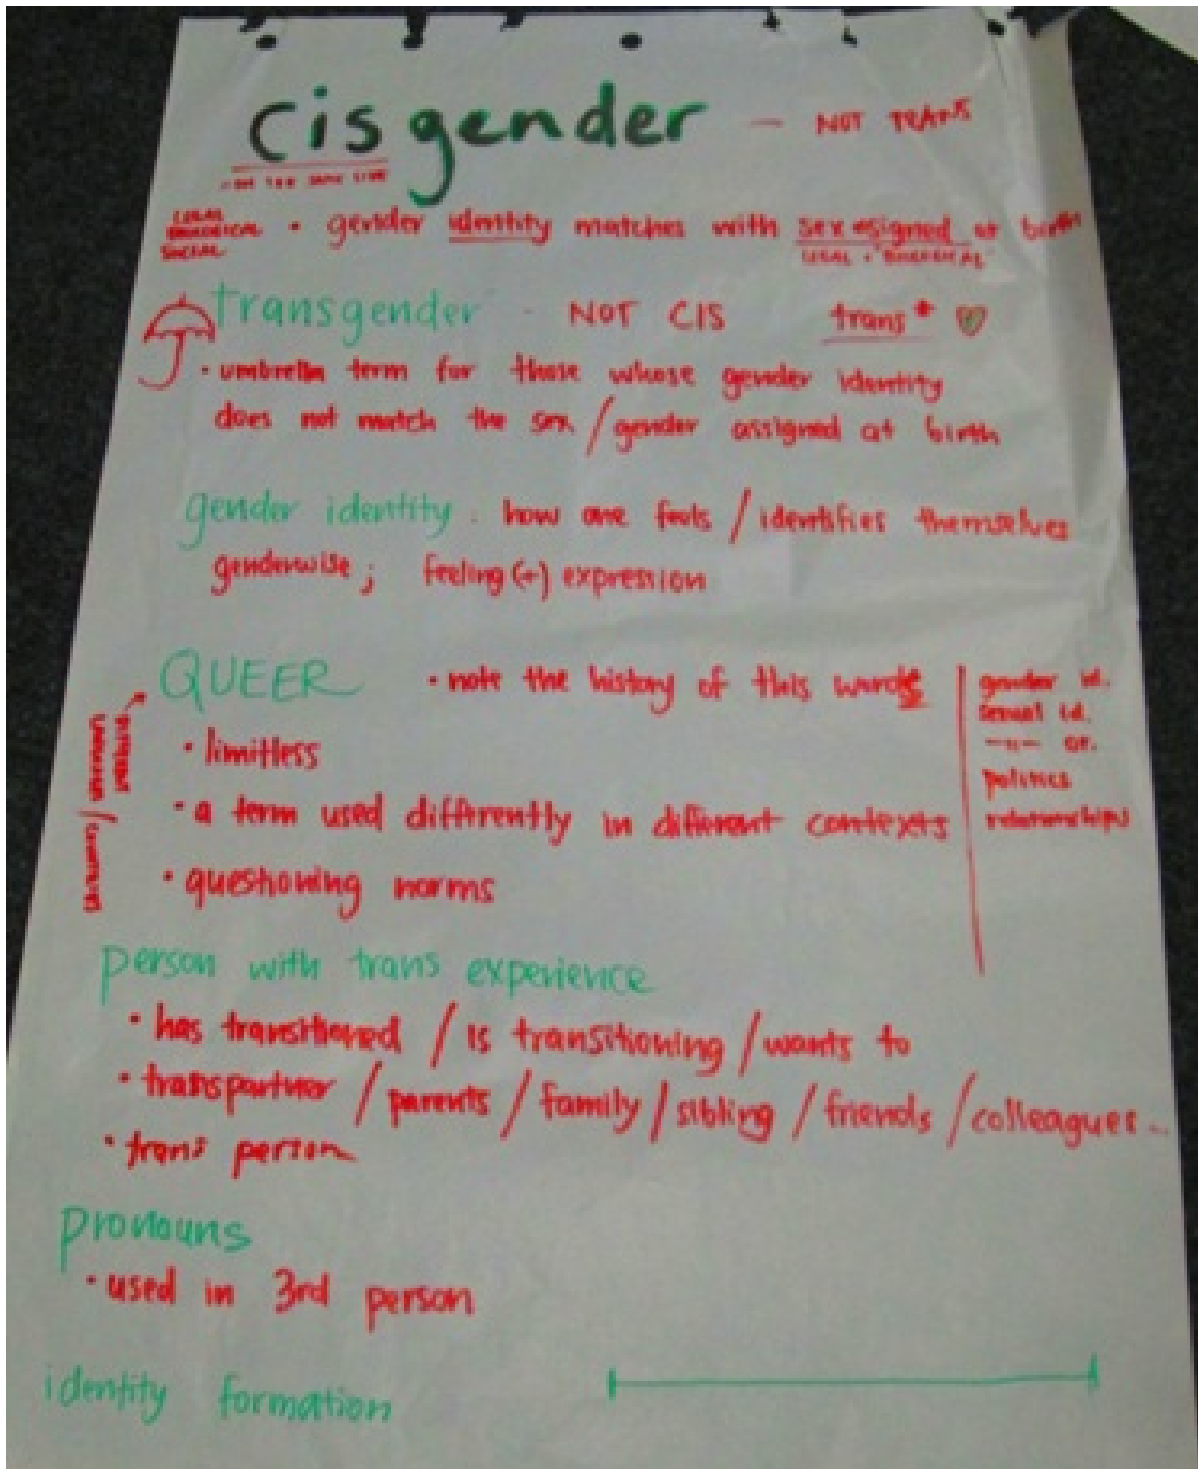 cisgender — NOT TRANS
- ON THE SAME SIDE
LEGAL
SOCIAL
• gender identity matches with sex asigned at birth
LEGAL + BIOLOGICAL
transgender - NOT CIS trans*
• umbrella term for those whose gender identity
does not match the sex / gender assigned at birth
gender identity : how one feels / identifies themselves
genderwise; feeling (+) expression
QUEER • note the history of this words
• limitless
• a term used differently in different contexts
• questioning norms
gender id.
sexual id.
—"— or.
politics
relationships
person with trans experience
• has transitioned / is transitioning / wants to
• transpartner / parents / family / sibling / friends / colleagues...
• trans person
pronouns
• used in 3rd person
identity formation